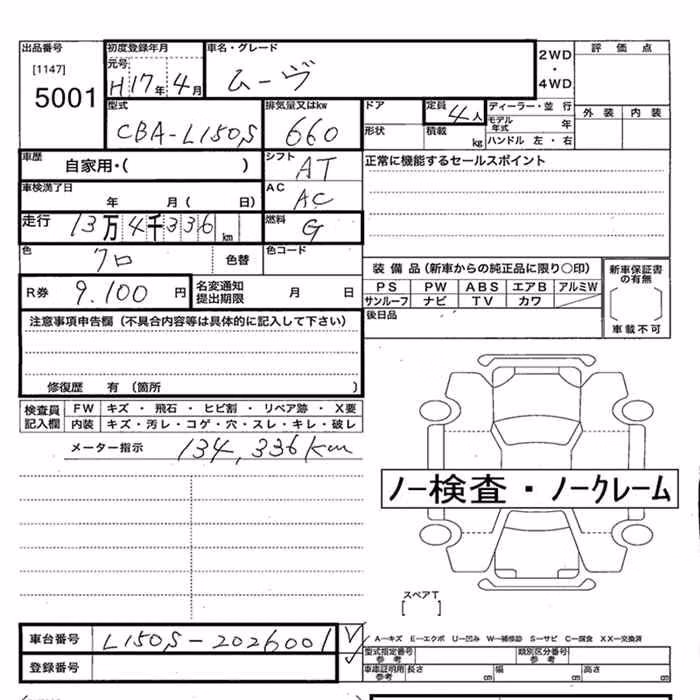 出品番号 初度登録年月 車名・グレード 2WD・4WD 評価点
[1147] 元号
5001 H17年4月 ムーヴ
型式 排気量又はkw ドア 定員 4人 ディーラー・並行 外装 内装
CBA-L150S 660 形状 積載 kg モデル年式 年
ハンドル 左・右
車歴 自家用・( ) シフト AT 正常に機能するセールスポイント
車検満了日 年 月( 日) AC AC
走行 13万4千336km 燃料 G
色 クロ 色替 色コード
装備品(新車からの純正品に限り○印) 新車保証書の有無
R券 9.100円 名変通知提出期限 月 日 PS PW ABS エアB アルミW
サンルーフ ナビ TV カワ
後日品 車載不可
注意事項申告欄(不具合内容等は具体的に記入して下さい)
修復歴 有(箇所 )
検査員記入欄 FW キズ・飛石・ヒビ割・リペア跡・X要
内装 キズ・汚レ・コゲ・穴・スレ・キレ・破レ
メーター指示 134,336km
ノー検査・ノークレーム
スペアT
[ ]
車台番号 L150S-2026001 A-キズ E-エクボ U-凹み W-補修跡 S-サビ C-腐食 XX-交換済
型式指定番号 参考 類別区分番号 参考
登録番号 車庫証明用 参考 長さ cm 幅 cm 高さ cm